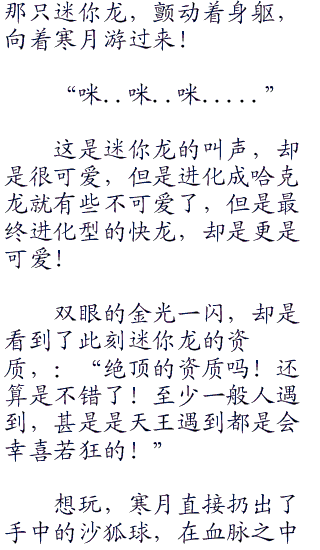 那只迷你龙，颤动着身躯，
向着寒月游过来！
“咪..咪..咪.....”
这是迷你龙的叫声，却
是很可爱，但是进化成哈克
龙就有些不可爱了，但是最
终进化型的快龙，却是更是
可爱！
双眼的金光一闪，却是
看到了此刻迷你龙的资
质，：“绝顶的资质吗！还
算是不错了！至少一般人遇
到，甚是是天王遇到都是会
幸喜若狂的！”
想玩，寒月直接扔出了
手中的沙狐球，在血脉之中